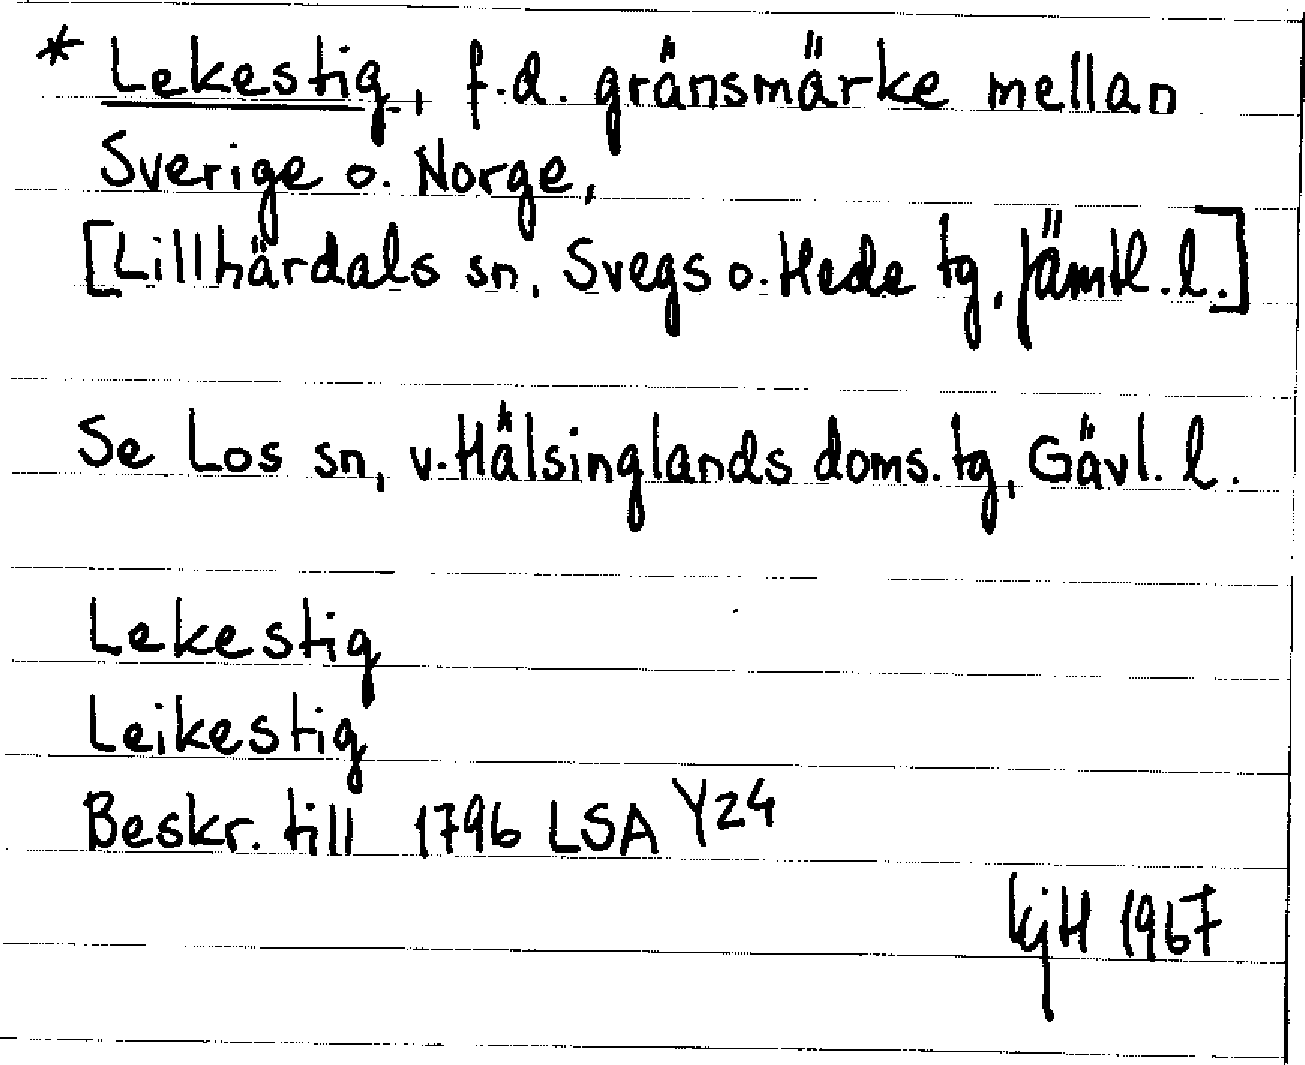 * Lekestig, f.d. gränsmärke mellan
Sverige o. Norge,
[Lillhärdals sn, Svegs o. Hede tg, Jämtl. l.]
Se Los sn, v. Hälsinglands doms. tg, Gävl. l.
Lekestig
Leikestig
Beskr. till 1796 LSA Y24
KjH 1967